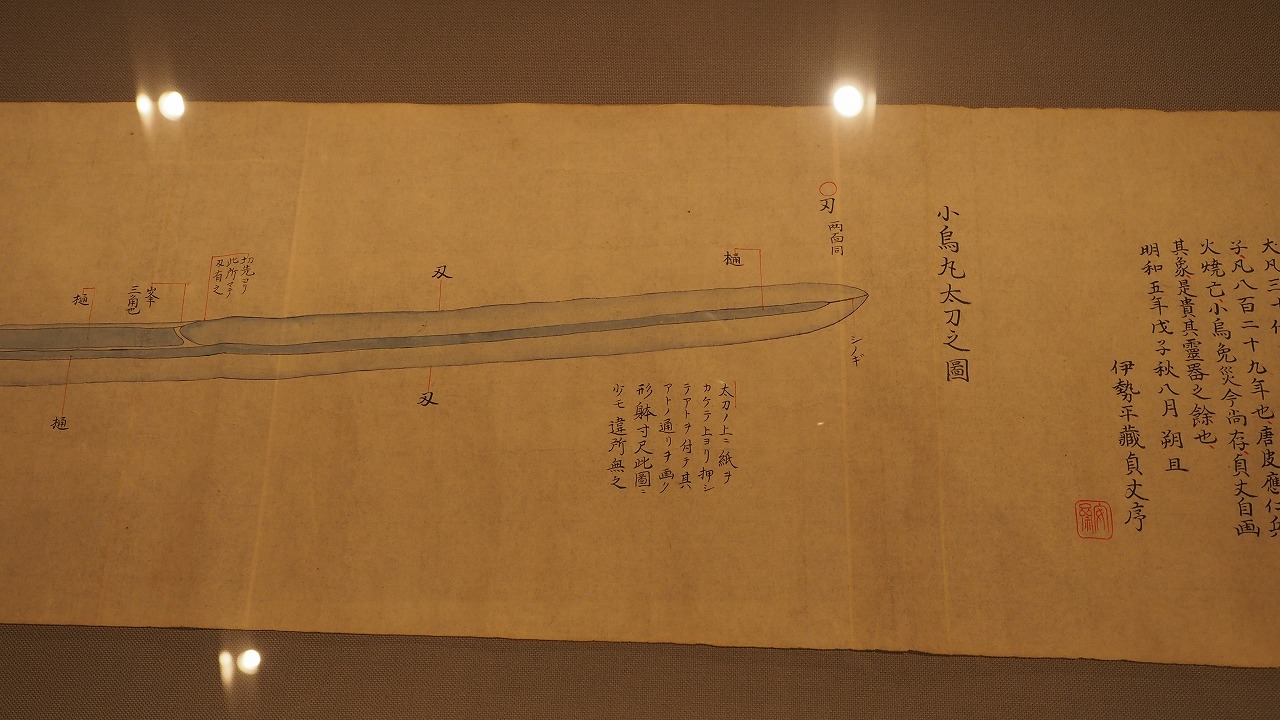 大凡三十代
子凡八百二十九年也、唐皮應仁兵
火燒亡小烏免災今尚存、貞丈自画
其象是貴其靈器之餘也、
明和五年戊子秋八月朔旦
伊勢平藏貞丈序
小烏丸太刀之圖
刃両面同
シノギ
樋
太刀ノ上ニ紙ヲ
カケテ上ヨリ押シ
テアトヲ付テ其
アトノ通リヲ画ク
形躰寸尺此圖ニ
少モ違所無之
刃
刃
切先ヨリ
此所マテ
刃有之
峯
三角也
樋
樋